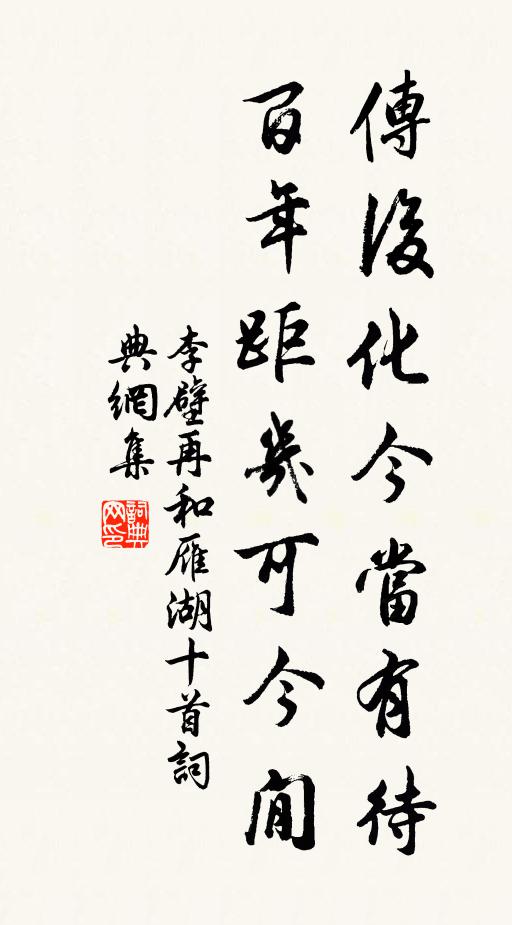 傳後化今當有待
百年距幾可今閒
李壁再和雁湖十首詞
典網集
詞典網印